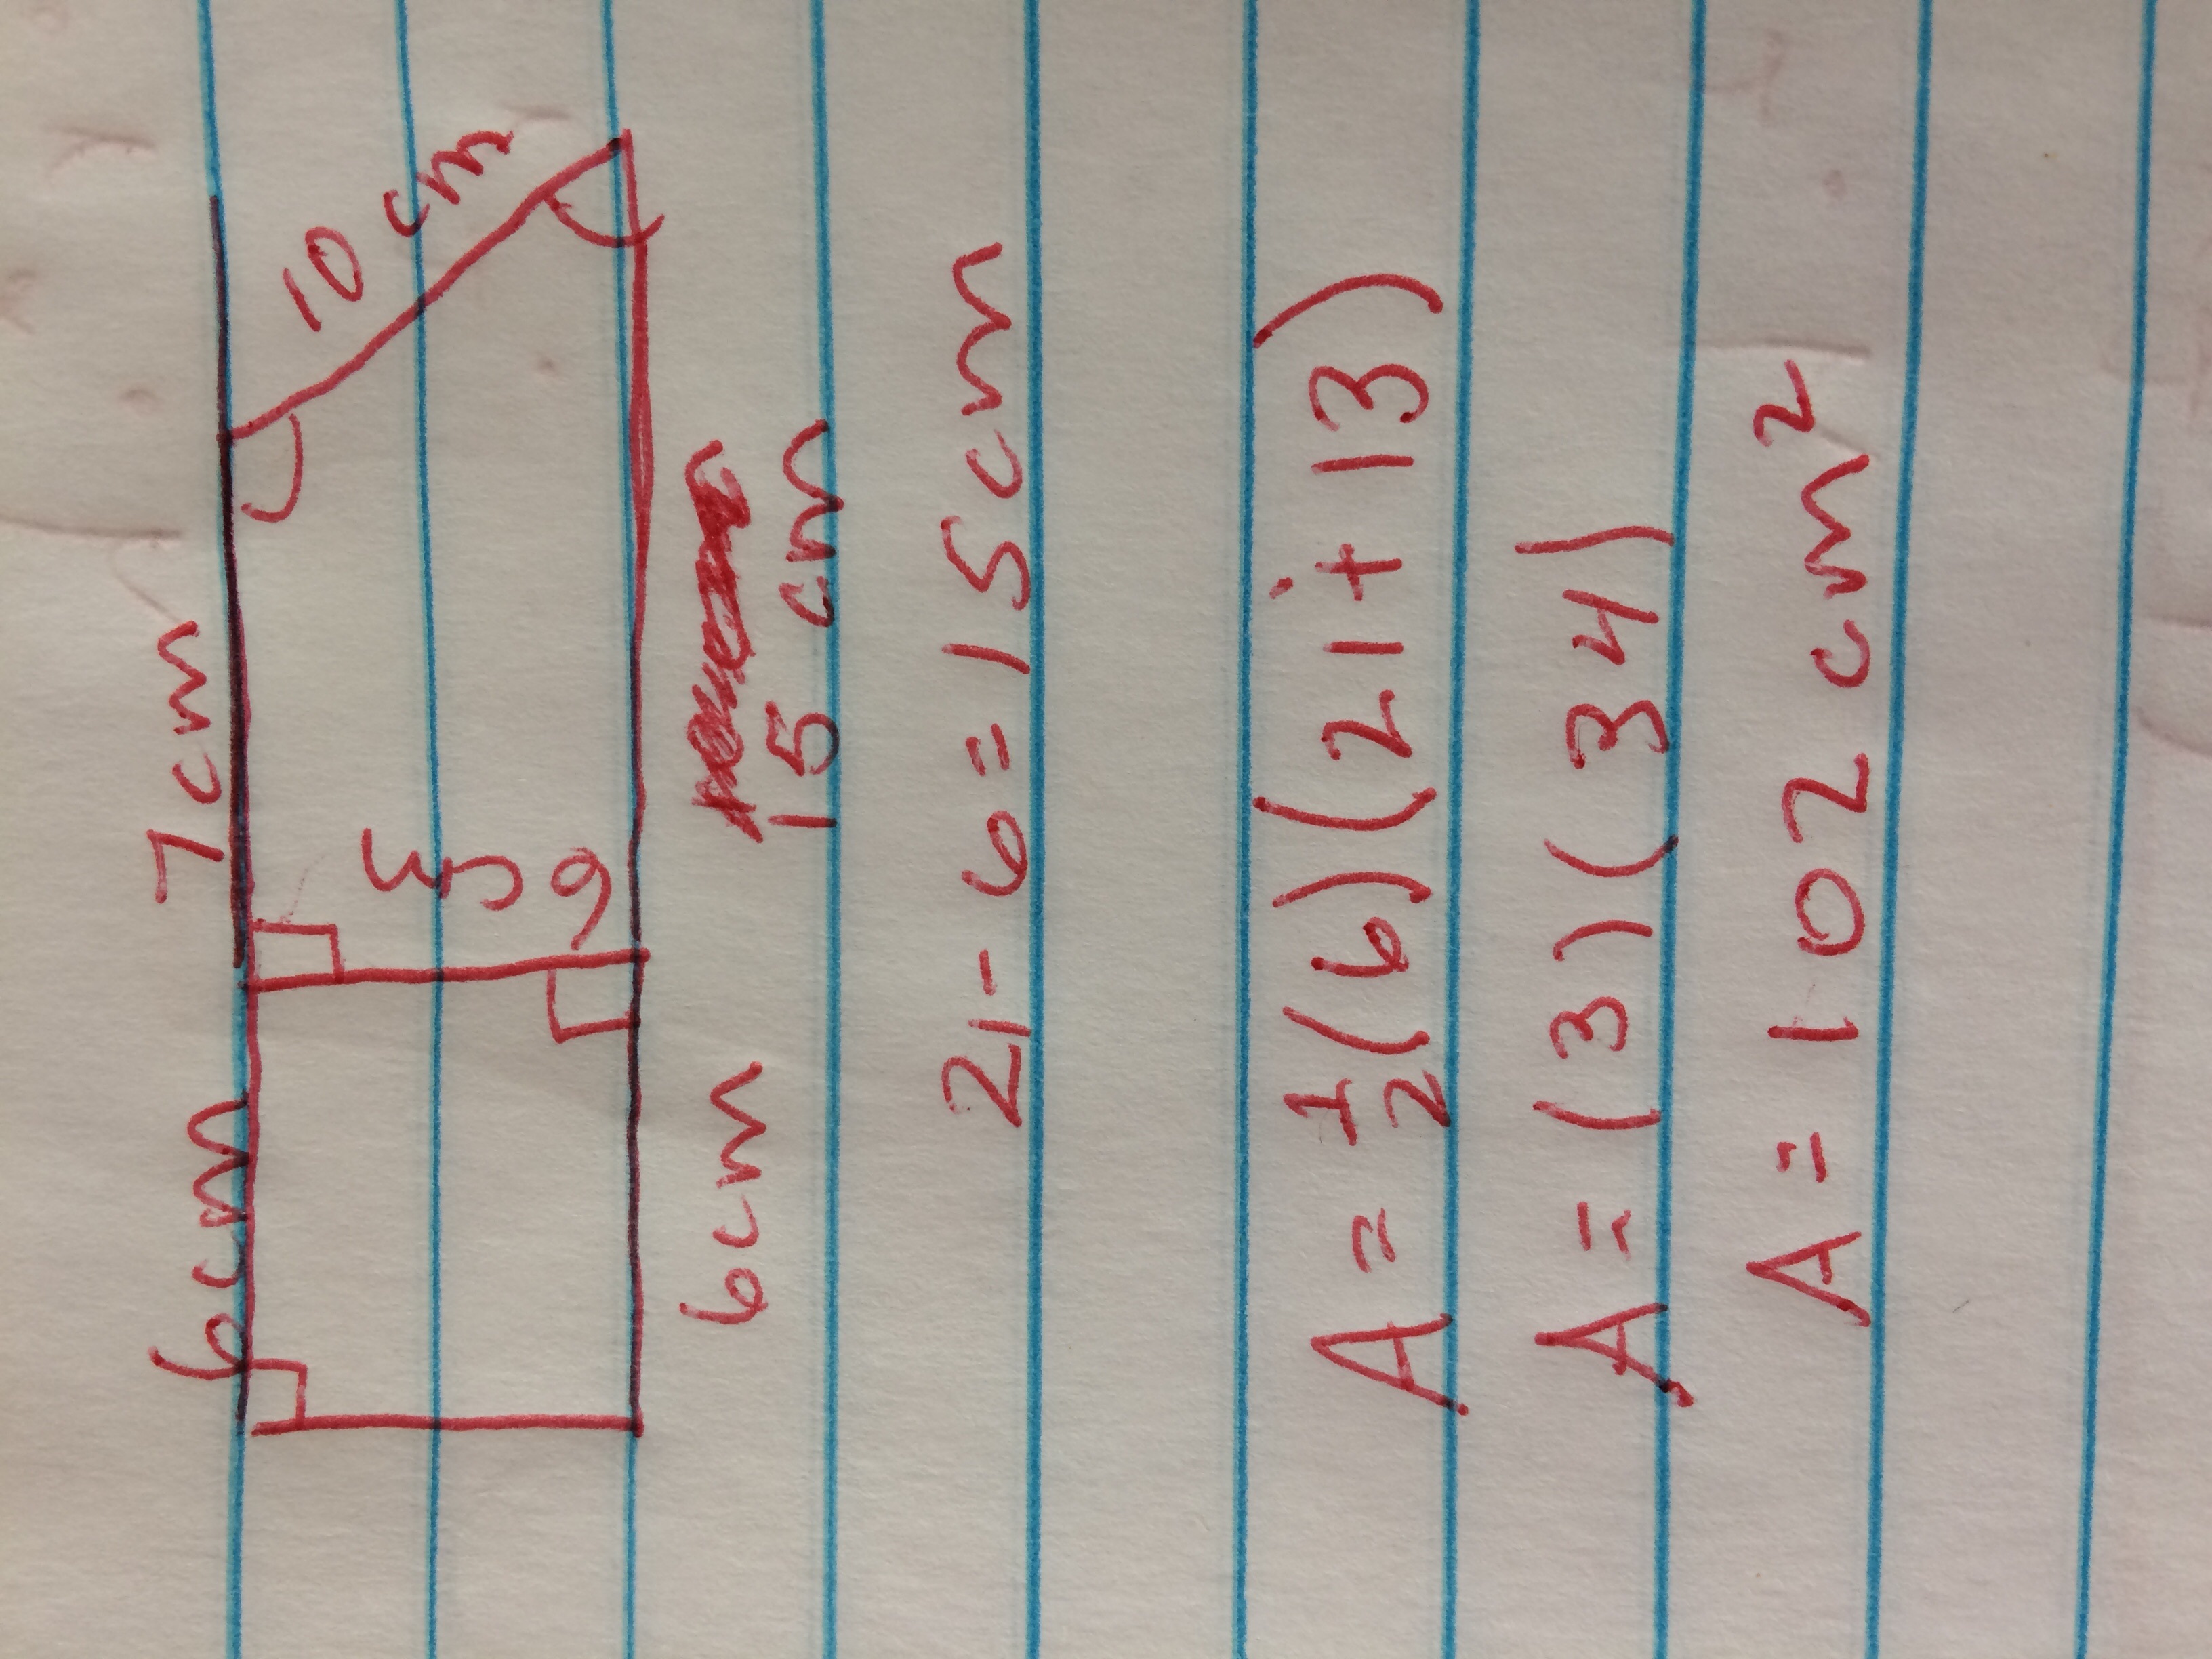 6cm 7cm
10 cm
6 cm
6cm 15 cm
21-6=15cm
A=½(6)(21+13)
A=(3)(34)
A=102cm²